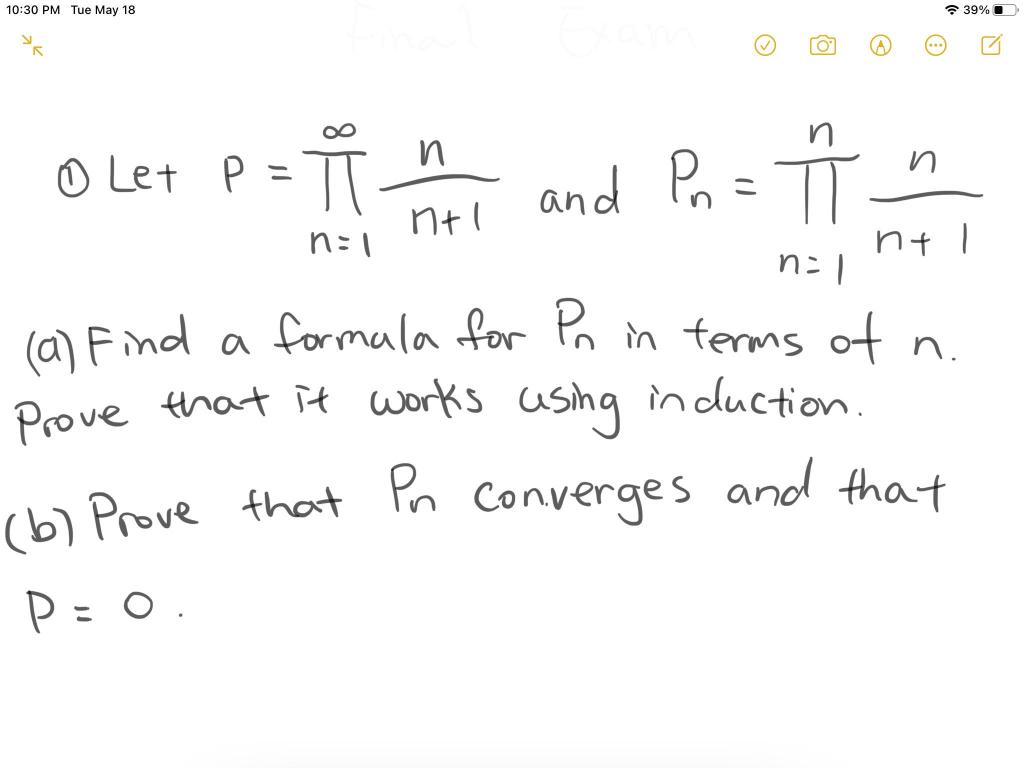 10:30 PM Tue May 18 39%
Final Exam
① Let P = ∞∏n=1 n/n+1 and Pn = n∏n=1 n/n+1
(a) Find a formula for Pn in terms of n.
Prove that it works using induction.
(b) Prove that Pn converges and that
P = 0.